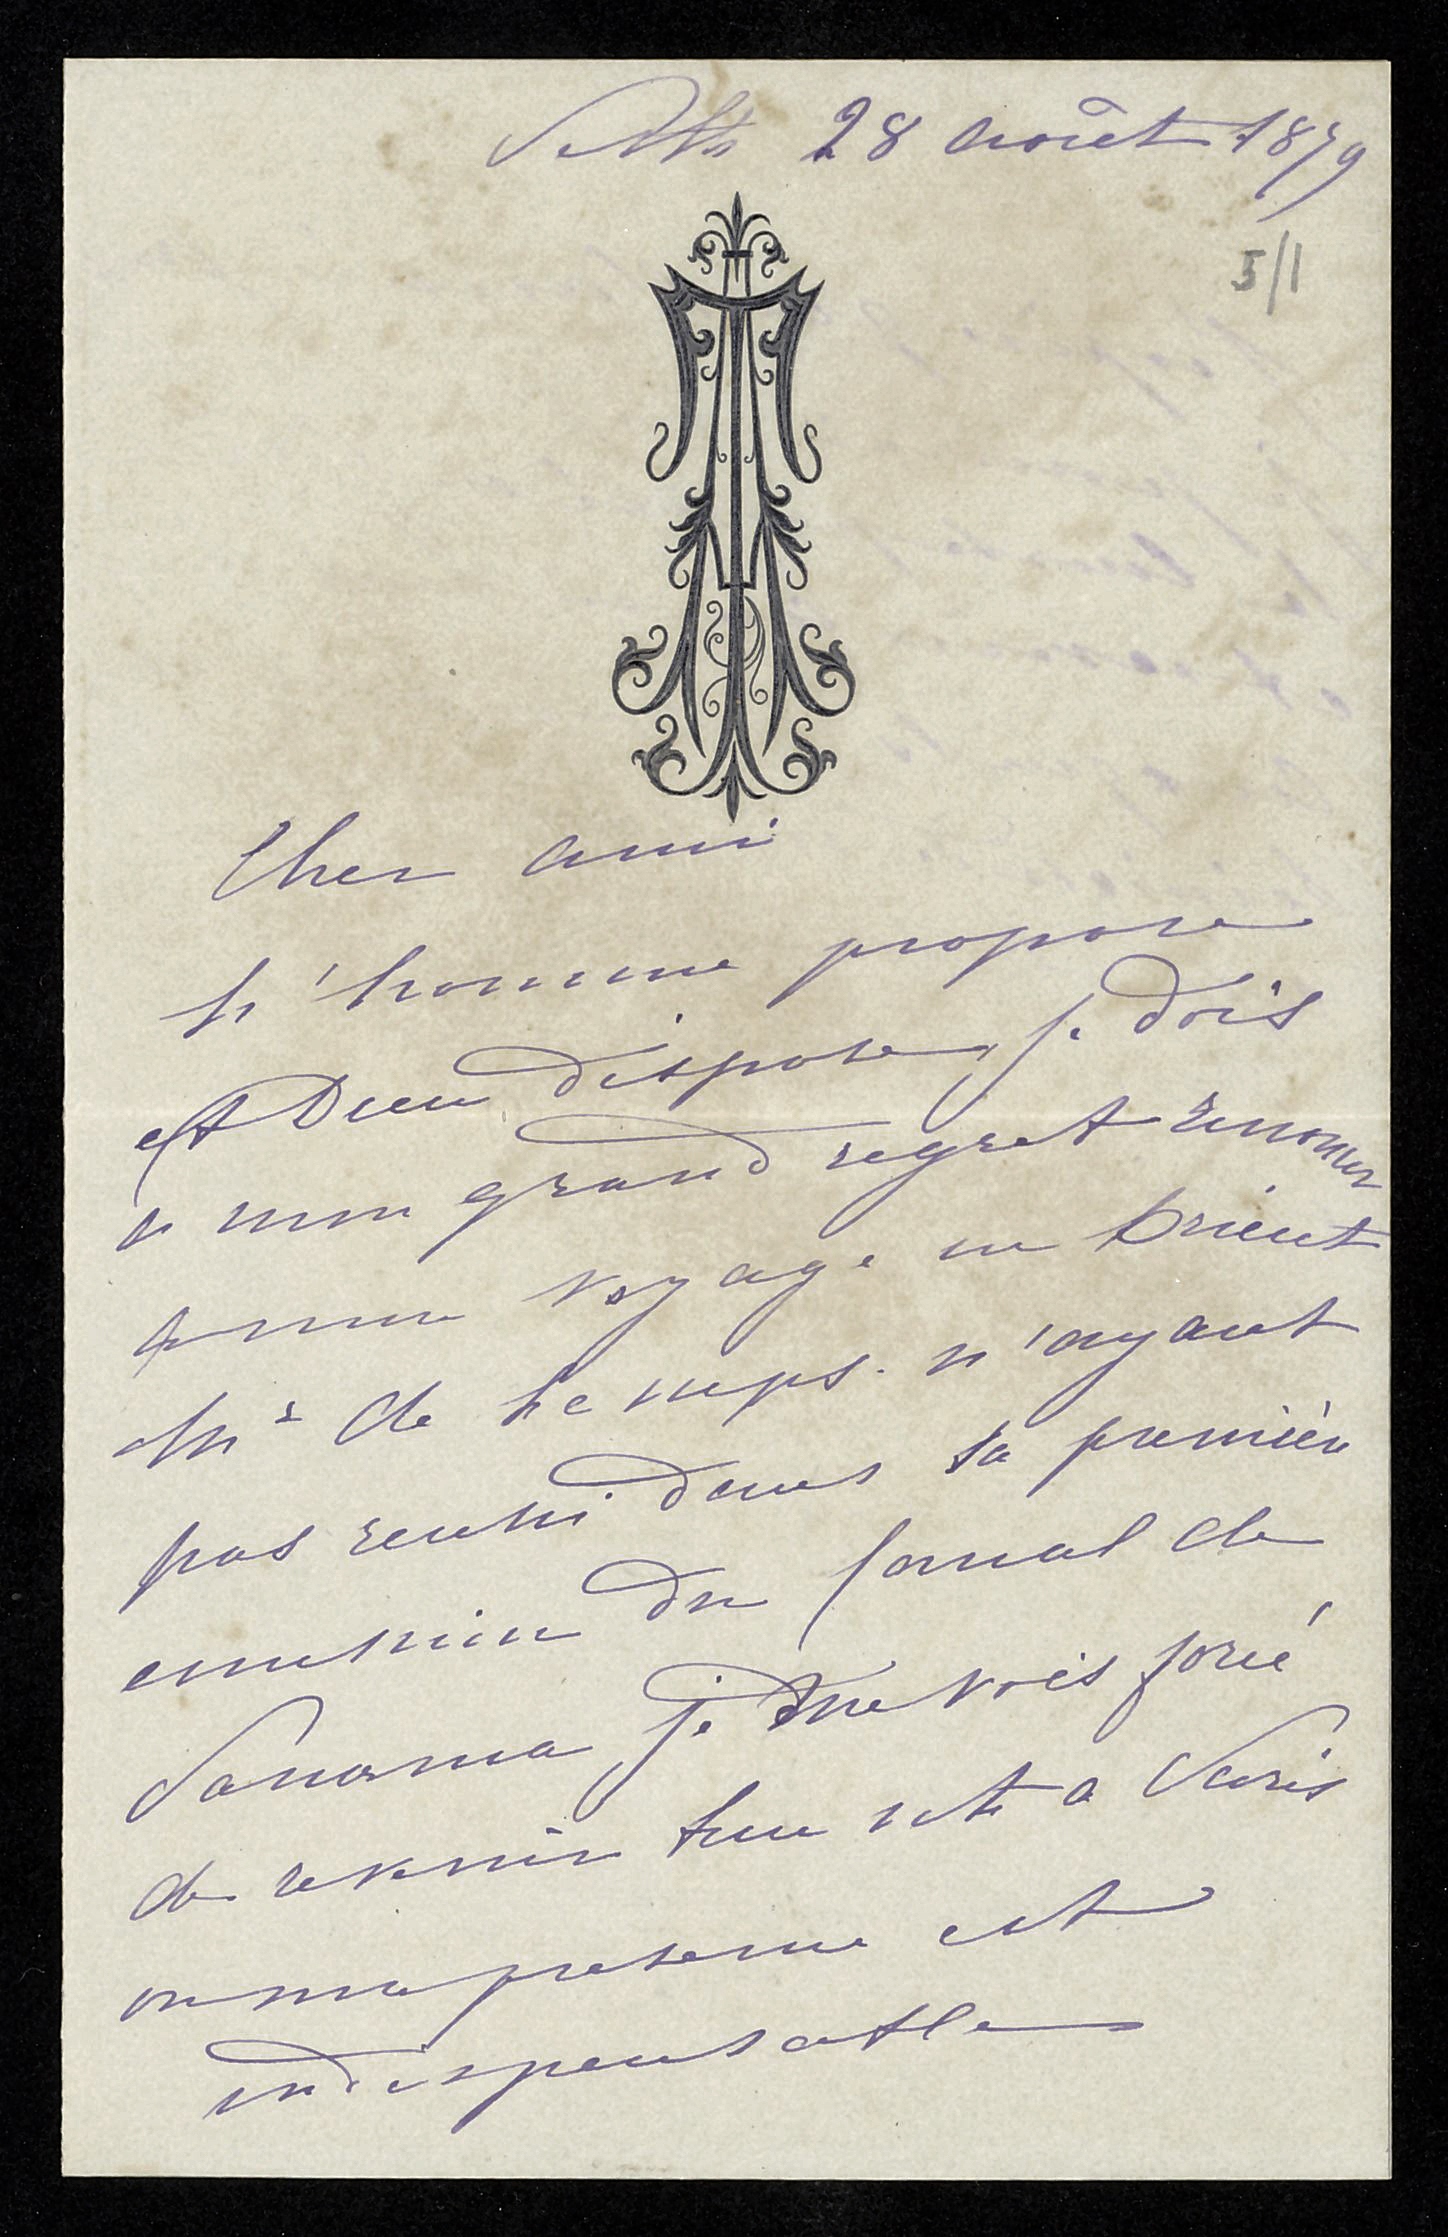 Pesth 28 août 1879
5/1
Cher ami
L'homme propose
et Dieu dispose, je dois
a mon grand regret renoncer
a mon voyage en Orient
Mr de Lesseps n'ayant
pas reussi dans sa première
emission du Canal de
Panama je me vois forcé
de revenir tout de suite a Paris
ou ma presence est
indispensable